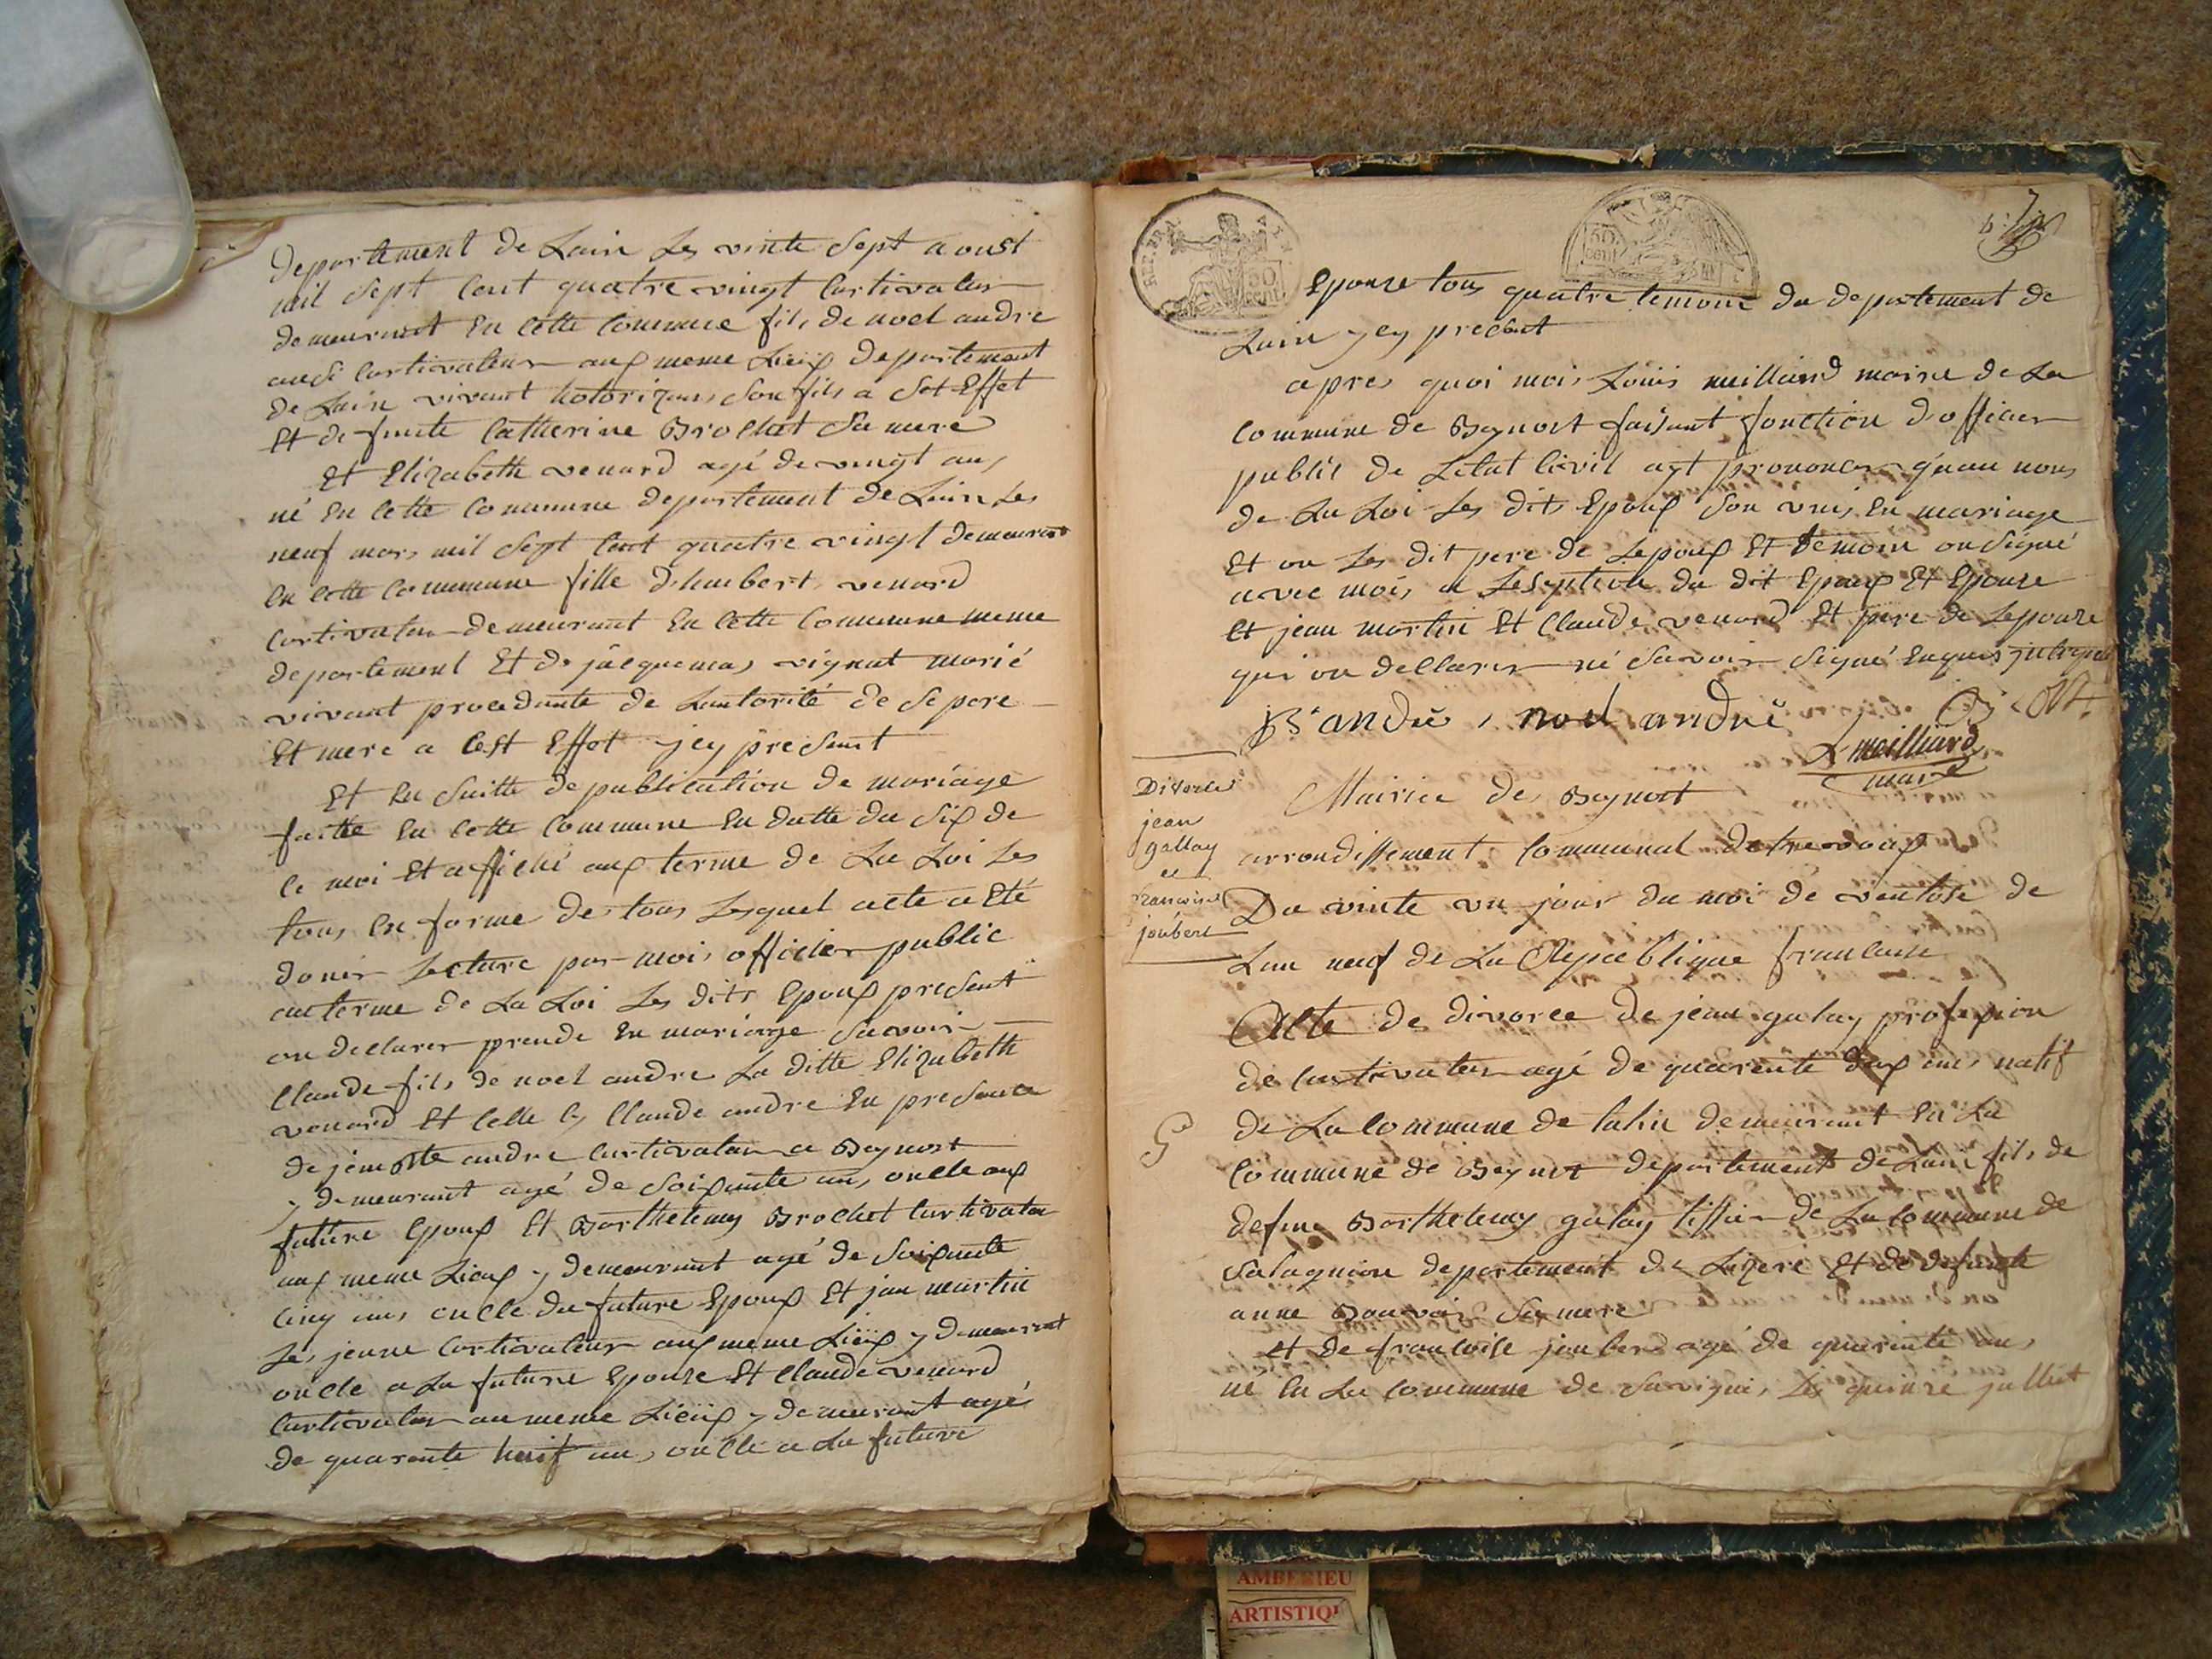 departement de Lain Les vinte Sept aoust
mil Sept Cent quatre vingt Cortivateur
demeurant En Cette Commune fils de noel andre
ausi Cortivateur aux meme Lieüx departement
de Lain vivant hotorizans Son fils a Set Effet
Et de funte Catherine Brochet Sa mere
Et Elizabeth venard agé de vingt ans
né En Cette Commune departement de Lain Les
neuf mars mil Sept Cent quatre vingt demeurant
En Cette Commune fille d'humbert venard
Cortivateur demeurant En Cette Commune meme
departement Et de jacquemas vignat marié
vivant procedante de Lautorité de Se pere
Et mere a Cest Effet jcy present
Et En Suitte de publication de mariage
faitte En Cette Commune En datte du Six de
Ce moi Et affiché aux terme de La Loi Les
tous En forme de tous Lesquel acte a Eté
doner Lecture par moi officier public
au terme de La Loi Les dits Epoux present
on declarer prende En mariage Savoir
Claude fils de noel andre La ditte Elizabeth
venard Et Celle Cy Claude andre En presence
de andre Cortivateur a Beynost
y demeurant agé de Soixante ans oncle aux
future Epoux Et Barthelemy Brochet Cortivateur
aux meme Lieux y demeurant agé de Soixante
Cinq ans oncle du future Epoux Et jean martin
Le jeune Cortivateur aux meme Lieüx y demeurant
oncle a La future Epouze Et Claude venard
Cortivateur au meme Lieüx y demeurant agé
de quarente huit ans oncle a La future
Epouze tous quatre temoin du departement de
Lain jcy present
apres quoi moi Loüis meilland maire de La
Commune de Beynost faisant fonction d'officier
public de Letat Civil ayt prononcer quau nom
de La Loi Les dits Epoux Son unis En mariage
Et on Les dit pere de Lepoux Et temoin on Signé
avec moi a Leseption du dit Epoux Et Epouze
Et jean martin Et Claude venard Et pere de Lepouze
qui on dellarer né Savoir Signé Enquis
B andré noel andré
L meilland
maire
Divorce
jean
gallay
et
francoise
joubert
Mairie de Beynost
arrondissement Communal de trevoux
Du vinte un jour du moi de ventose de
Lan neuf de La Republique francaise
Acte de divorce de jean galay profession
de Cortivateur agé de quarente dex ans natif
de La Commune de demeurant En La
Commune de Beynost departement de Lain fils de
defun Barthelemy galay tissier de La Commune de
Salagnion departement de Lizere Et de defunte
anne Bouvoir Sa mere
et de francoise joubert agé de quarente ans
né En La Commune de Savigni Les quinze jullliet
AMBERIEU
ARTISTIQ